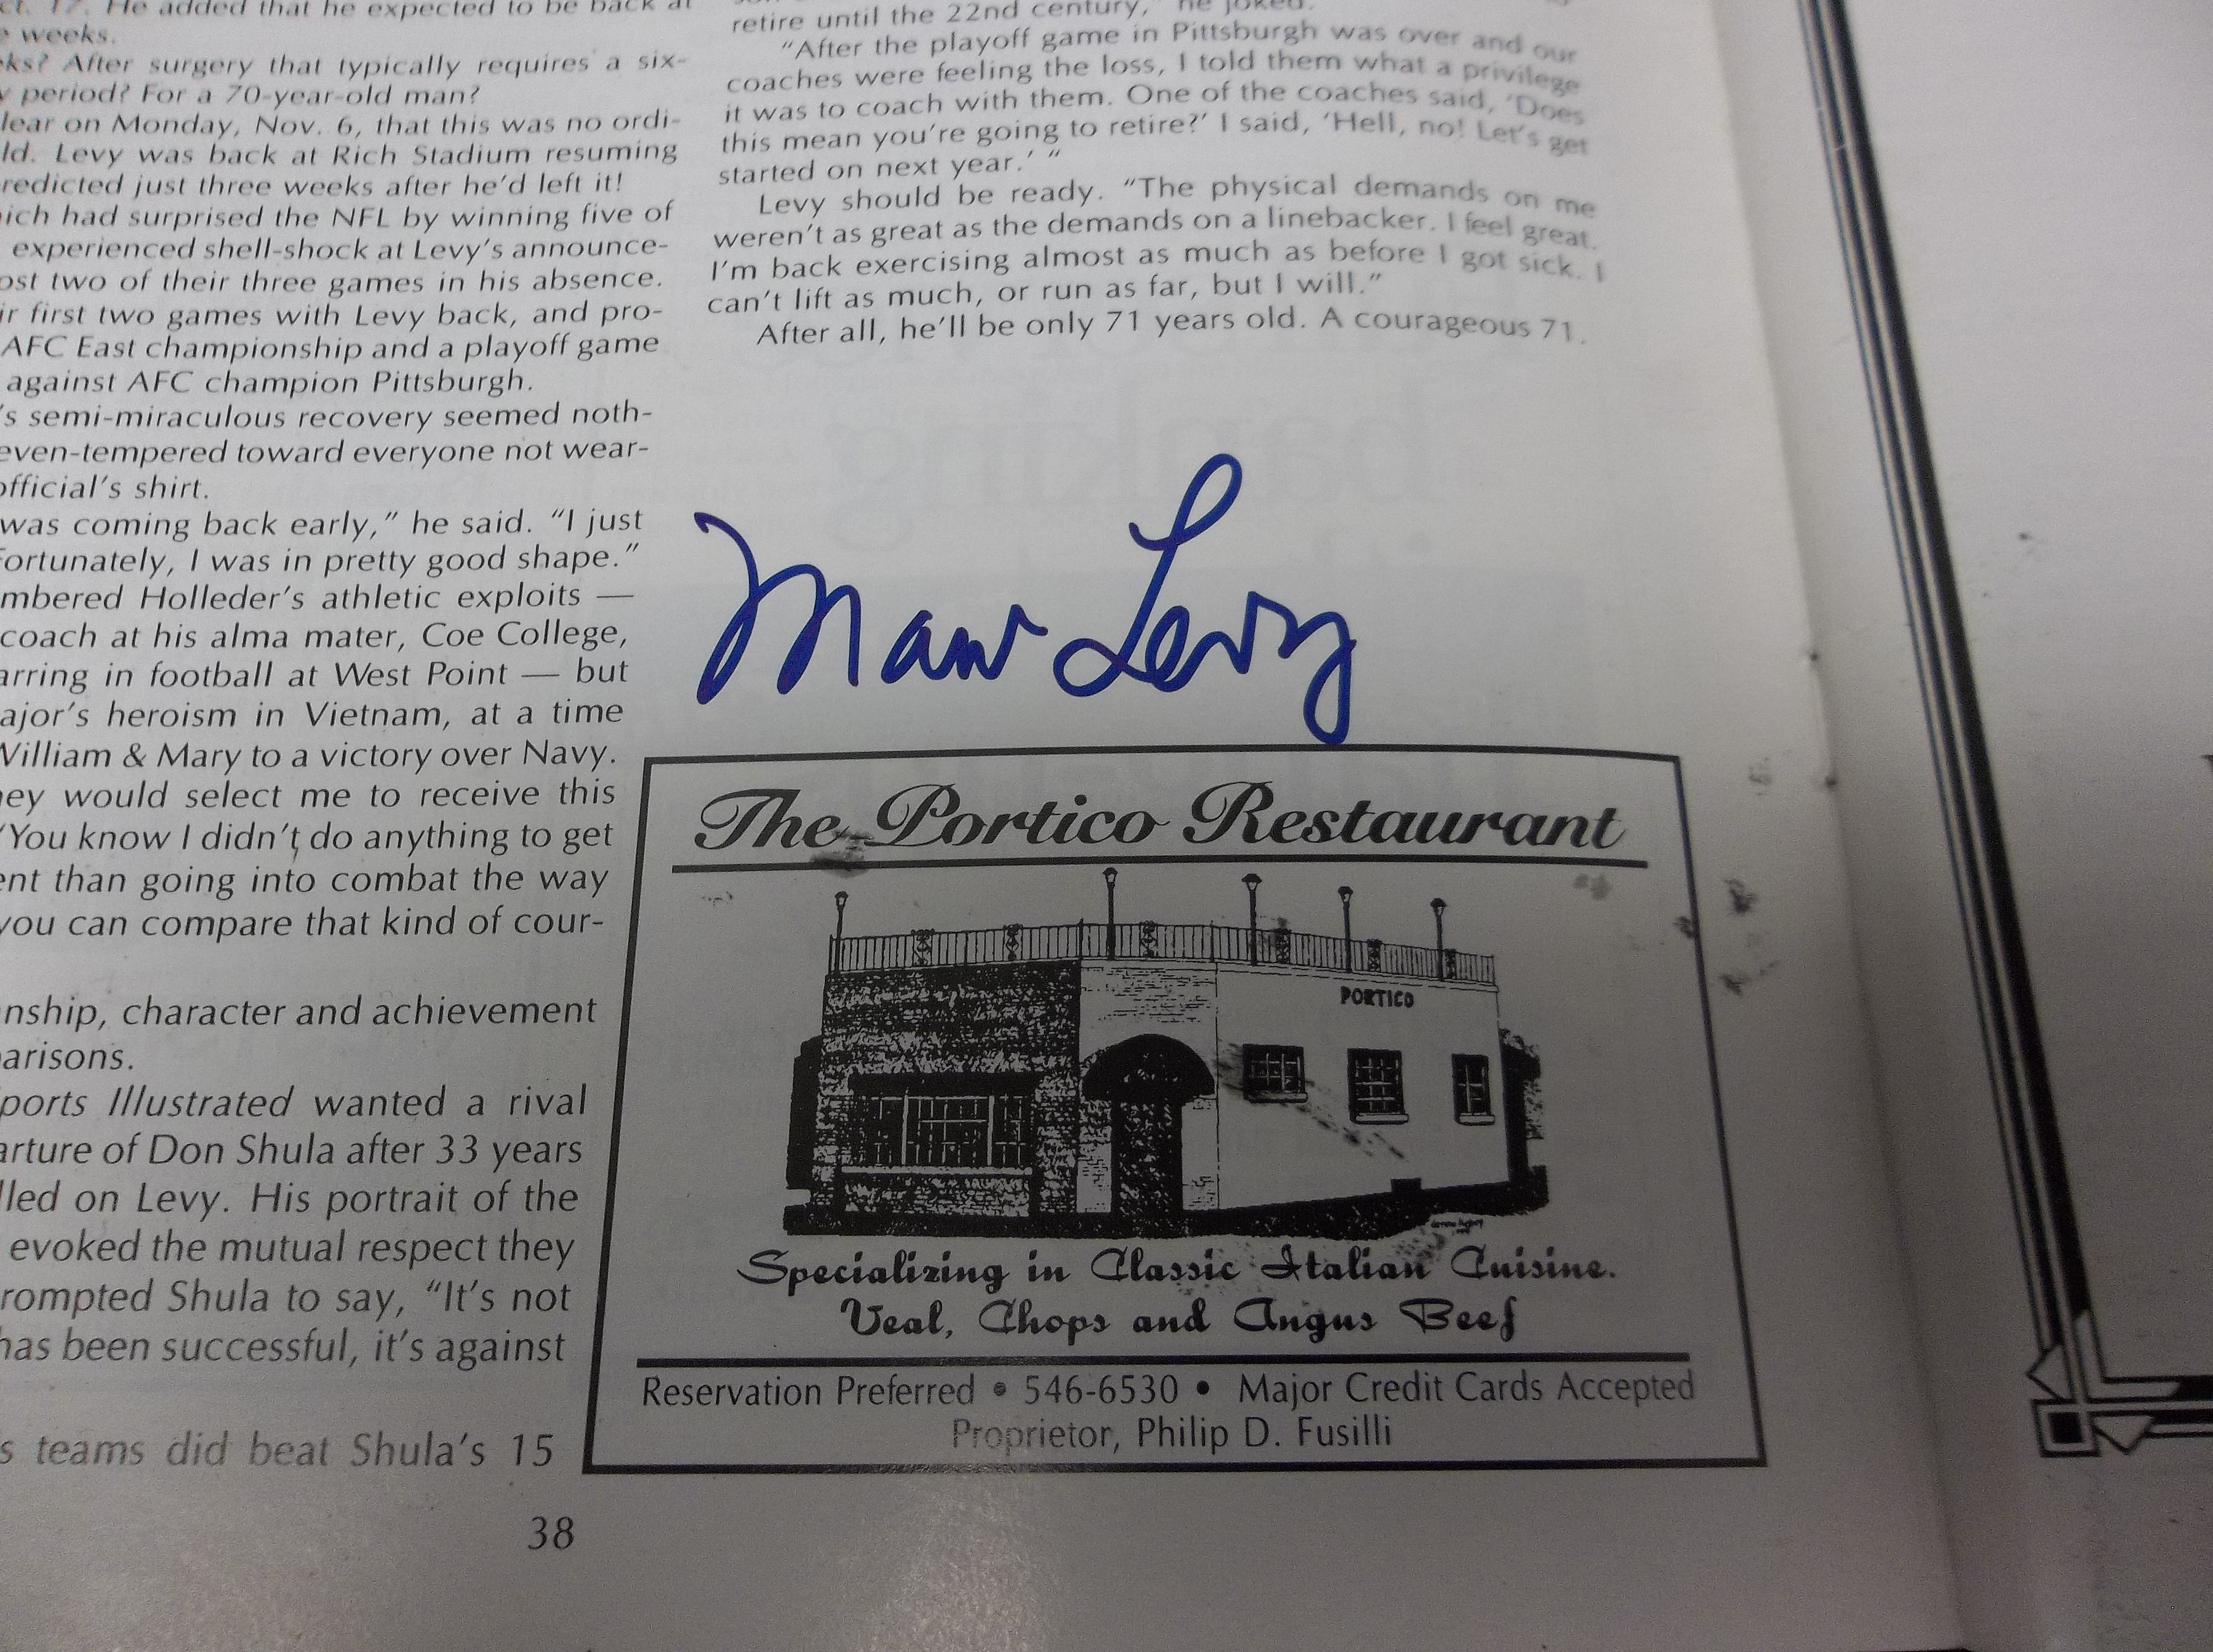 ct. 17. He added that he expected to be back at
weeks.
ks? After surgery that typically requires a six-
period? For a 70-year-old man?
lear on Monday, Nov. 6, that this was no ordi-
ld. Levy was back at Rich Stadium resuming
redicted just three weeks after he'd left it!
ich had surprised the NFL by winning five of
experienced shell-shock at Levy's announce-
ost two of their three games in his absence.
ir first two games with Levy back, and pro-
AFC East championship and a playoff game
against AFC champion Pittsburgh.
's semi-miraculous recovery seemed noth-
even-tempered toward everyone not wear-
official's shirt.
was coming back early," he said. "I just
Fortunately, I was in pretty good shape."
mbered Holleder's athletic exploits —
coach at his alma mater, Coe College,
arring in football at West Point — but
ajor's heroism in Vietnam, at a time
William & Mary to a victory over Navy.
ney would select me to receive this
"You know I didn't do anything to get
ent than going into combat the way
you can compare that kind of cour-
nship, character and achievement
parisons.
ports Illustrated wanted a rival
arture of Don Shula after 33 years
lled on Levy. His portrait of the
evoked the mutual respect they
rompted Shula to say, "It's not
has been successful, it's against
s teams did beat Shula's 15
retire until the 22nd century," he joked.
"After the playoff game in Pittsburgh was over and our
coaches were feeling the loss, I told them what a privilege
it was to coach with them. One of the coaches said, 'Does
this mean you're going to retire?' I said, 'Hell, no! Let's get
started on next year.' "
Levy should be ready. "The physical demands on me
weren't as great as the demands on a linebacker. I feel great.
I'm back exercising almost as much as before I got sick. I
can't lift as much, or run as far, but I will."
After all, he'll be only 71 years old. A courageous 71.
Marv Levy
The Portico Restaurant
PORTICO
Specializing in Classic Italian Cuisine.
Veal, Chops and Angus Beef
Reservation Preferred • 546-6530 • Major Credit Cards Accepted
Proprietor, Philip D. Fusilli
38